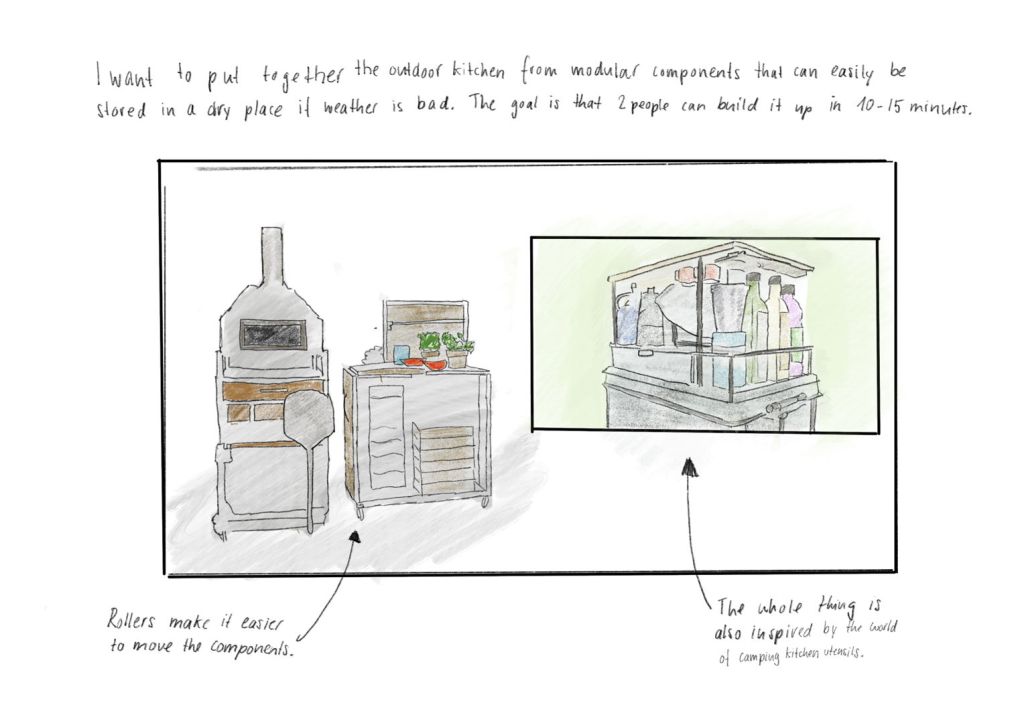 I want to put together the outdoor kitchen from modular components that can easily be
stored in a dry place if weather is bad. The goal is that 2 people can build it up in 10-15 minutes.
Rollers make it easier
to move the components.
The whole thing is
also inspired by the world
of camping kitchen utensils.